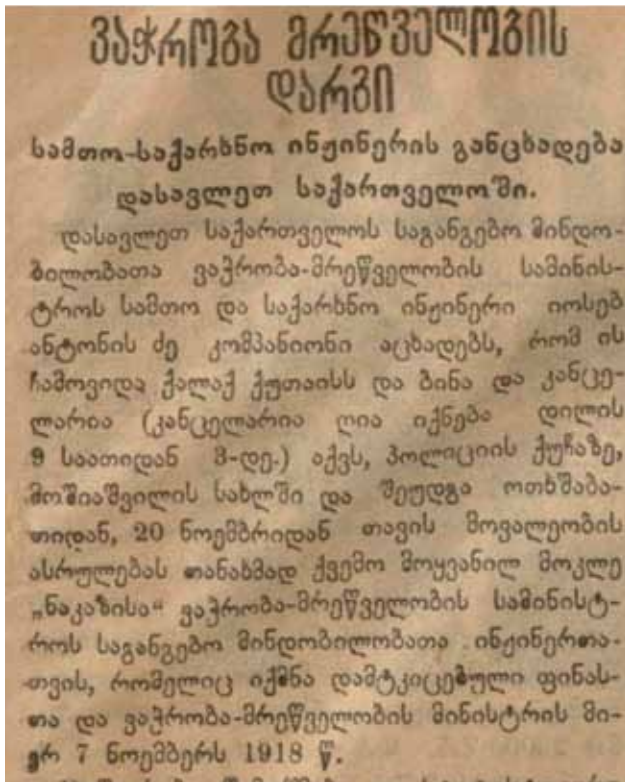 ვაჭრობა მრეწველობის
დარგი
სამთო-საქარხნო ინჟინერის განცხადება
დასავლეთ საქართველოში.
დასავლეთ საქართველოს საგანგებო მინდო-
ბილობათა ვაჭრობა-მრეწველობის სამინის-
ტროს სამთო და საქარხნო ინჟინერი იოსებ
ანტონის ძე კომპანიონი აცხადებს, რომ ის
ჩამოვიდა ქალაქ ქუთაისს და ბინა და კანცე-
ლარია (კანცელარია ღია იქნება დილის
9 საათიდან 3-დე.) აქვს, პოლიციის ქუჩაზე,
მოშიაშვილის სახლში და შეუდგა ოთხშაბა-
თიდან, 20 ნოემბრიდან თავის მოვალეობის
ასრულებას თანახმად ქვემო მოყვანილ მოკლე
„ნაკაზისა“ ვაჭრობა-მრეწველობის სამინისტ-
როს საგანგებო მინდობილობათა ინჟინერთა-
თვის, რომელიც იქმნა დამტკიცებული ფინას-
თა და ვაჭრობა-მრეწველობის მინისტრის მი-
ერ 7 ნოემბერს 1918 წ.